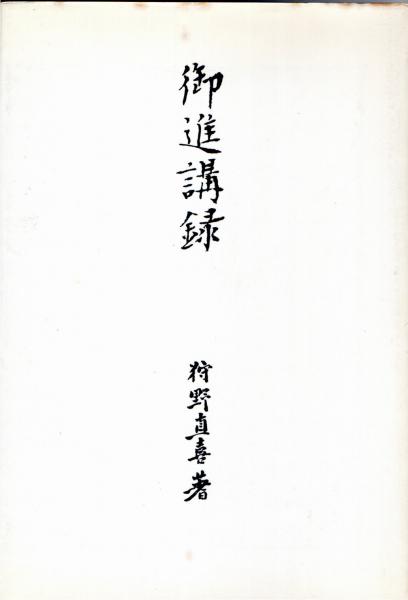 御進講録
狩野直喜著